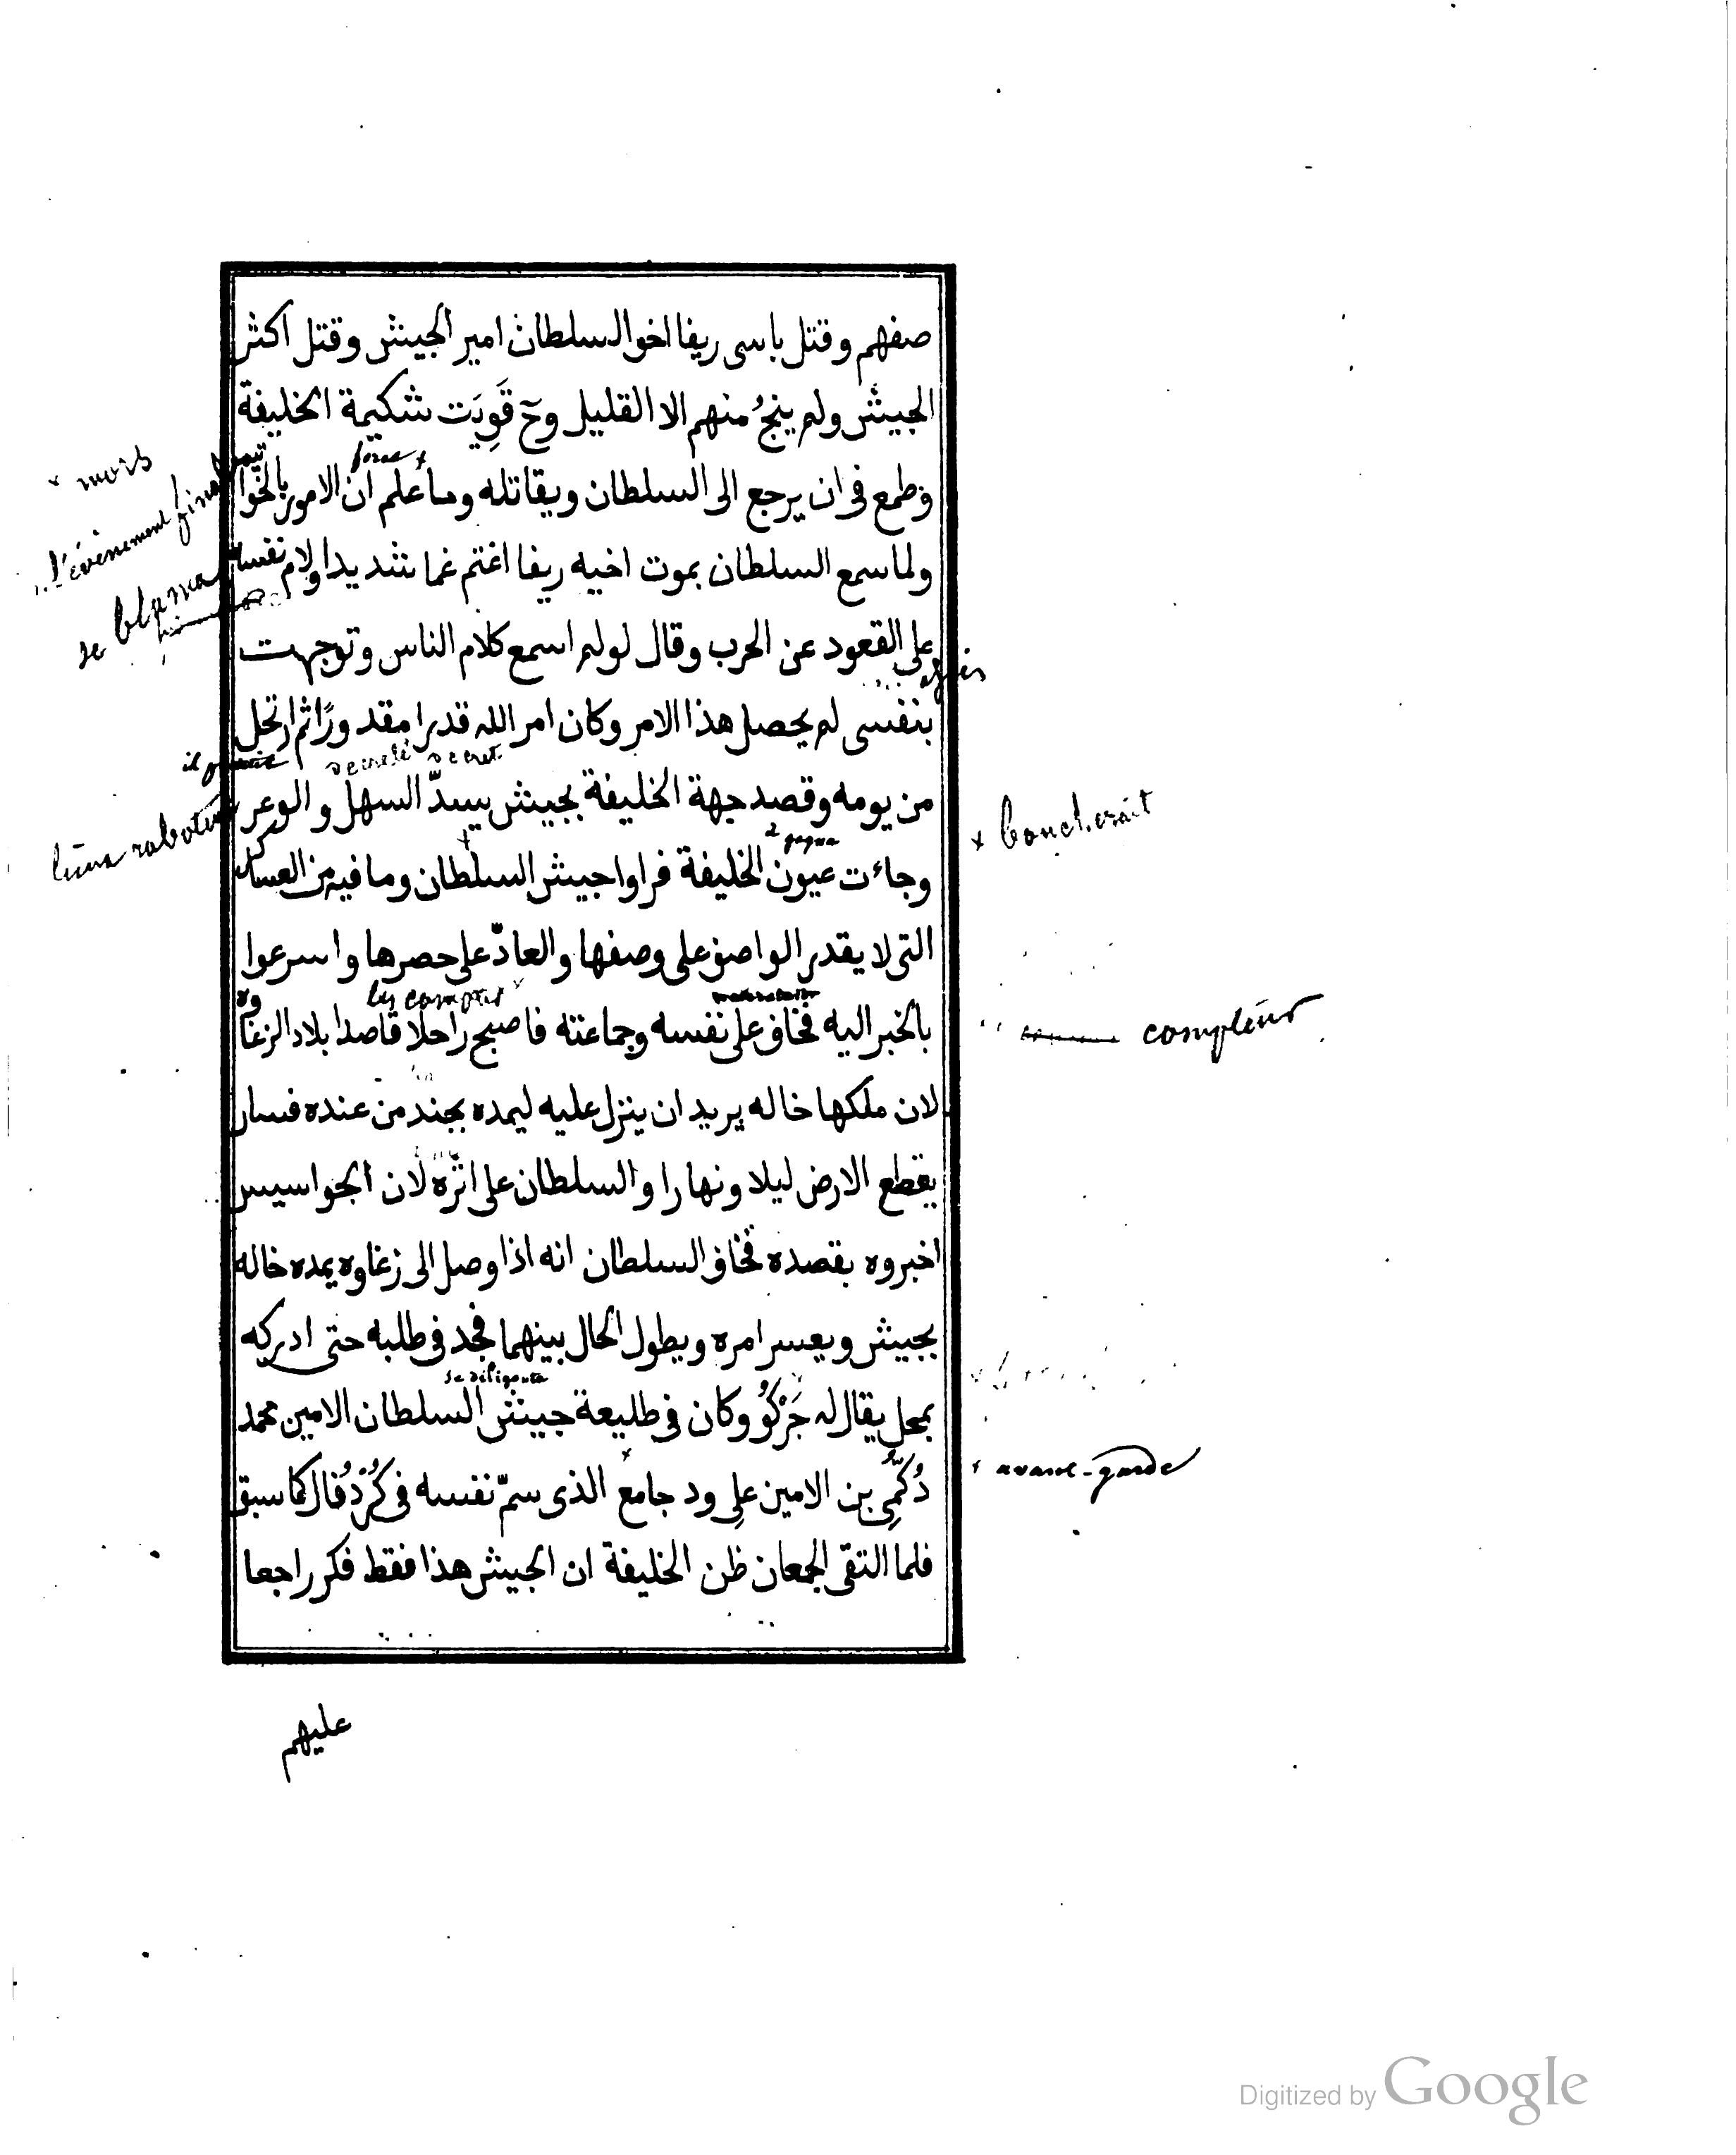 صفهم وقتل باسى ريفا اخوالسلطان امير الجيش وقتل اكثر
الجيش ولم ينجُ منهم الا القليل وحَ قَوِيَت شكيمة الخليفة
force +
× mors
وطمع فى ان يرجع الى السلطان ويقاتله وما علم ان الامور بالخواتيم
l'évènement final
ولما سمع السلطان بموت اخيه ريفا اغتم غما شديدا ولام نفسه
se blama
على القعود عن الحرب وقال لولم اسمع كلام الناس وتوجهت
بنفسى لم يحصل هذا الامر وكان امر الله قدرا مقدورًا ثم ارتحل
decreté decret
من يومه وقصد جهة الخليفة بجيش يسدّ السهل والوعر
× boucherait
lieux raboteux
وجاءت عيون الخليفة فراوا جيش السلطان وما فيه من العساكر
التى لا يقدر الواصف على وصفها والعادّ على حصرها واسرعوا
les compter ×
بالخبر اليه فخاف على نفسه وجماعته فاصبح راحلا قاصدا بلاد الزغاوه
compteur
لان ملكها خاله يريد ان ينزل عليه ليمده بجند من عنده فسار
يقطع الارض ليلا ونهارا والسلطان على اثره لان الجواسيس
اخبروه بقصده فخاف السلطان انه اذا وصل الى زغاوه يمده خاله
بجيش ويعسر امره ويطول الحال بينهما فجد فى طلبه حتى ادركه
se diligenta
بمحل يقال له جَرْكُو وكان فى طليعة جيش السلطان الامين محمد
× avant-garde
دُكُمِّى بن الامين علِى ود جامع الذى سمّ نفسه فى كُرْدُفال كما سبق
فلما التقى الجمعان ظن الخليفة ان الجيش هذا فقط فكر راجعا
عليهم
Digitized by Google